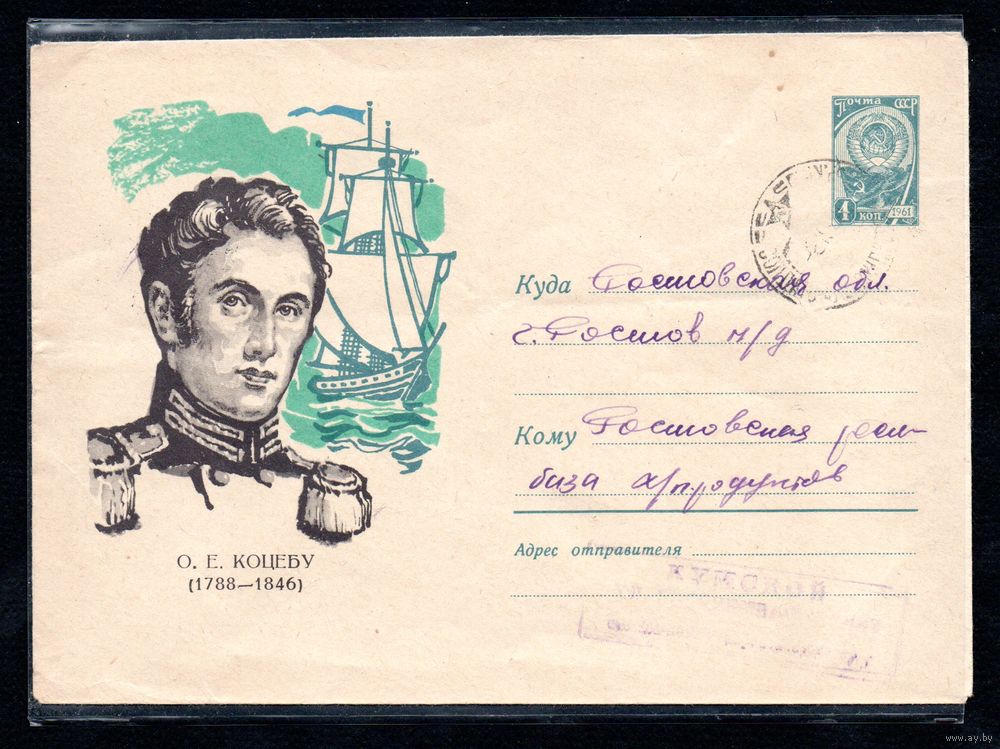 Почта СССР
4 коп
1961
Куда Ростовская обл.
г. Ростов н/д
Кому Ростовская
база х/продуктов
Адрес отправителя
О. Е. КОЦЕБУ
(1788—1846)
www.ay.by